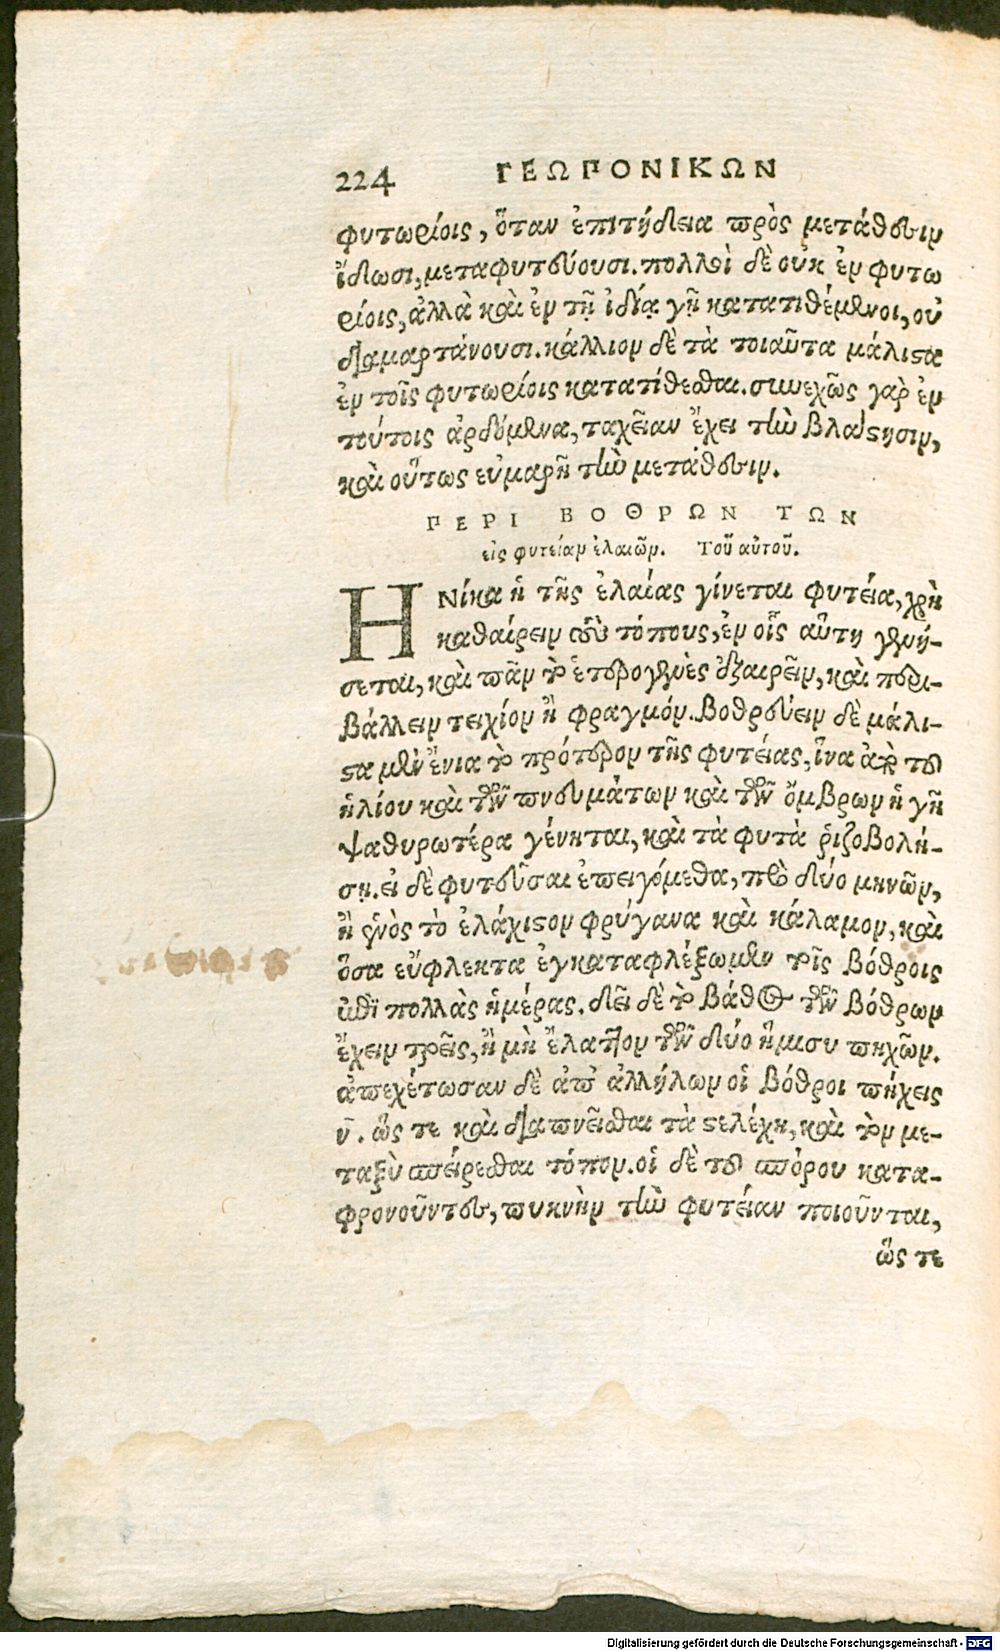 224 ΓΕΩΠΟΝΙΚΩΝ
φυτωρίοις, ὅταν ἐπιτήδεια πρὸς μετάθεσιν
ἴδωσι, μεταφυτεύουσι. πολλοὶ δὲ οὐκ ἐν φυτω
ρίοις, ἀλλὰ καὶ ἐν τῇ ἰδίᾳ γῇ κατατιθέμενοι, οὐ
διαμαρτάνουσι. κάλλιον δὲ τὰ τοιαῦτα μάλιστα
ἐν τοῖς φυτωρίοις κατατίθεσθαι. συνεχῶς γὰρ ἐν
τούτοις ἀρδόμενα, ταχεῖαν ἔχει τὴν βλάστησιν,
καὶ οὕτως εὐμαρῆ τὴν μετάθεσιν.
ΠΕΡΙ ΒΟΘΡΩΝ ΤΩΝ
εἰς φυτείαν ἐλαιῶν. Τοῦ αὐτοῦ.
ΗΝίκα ἡ τῆς ἐλαίας γίνεται φυτεία, χρὴ
καθαίρειν τοὺς τόπους, ἐν οἷς αὕτη γενή-
σεται, καὶ πᾶν τὸ ἑτερογενὲς ἐξαιρεῖν, καὶ περι-
βάλλειν τειχίον ἢ φραγμόν. Βοθρεύειν δὲ μάλι-
στα μὲν ἔνια τὸ πρότερον τῆς φυτείας, ἵνα ἀπὸ τοῦ
ἡλίου καὶ τῶν πνευμάτων καὶ τῶν ὄμβρων ἡ γῆ
ψαθυρωτέρα γένηται, καὶ τὰ φυτὰ ῥιζοβολή-
σῃ. εἰ δὲ φυτεῦσαι ἐπειγόμεθα, πρὸ δύο μηνῶν,
ἢ ἑνὸς τὸ ἐλάχιστον φρύγανα καὶ κάλαμον, καὶ
ὅσα εὔφλεκτα ἐγκαταφλέξωμεν τοῖς βόθροις
ἐπὶ πολλὰς ἡμέρας. δεῖ δὲ τὸ βάθος τῶν βόθρων
ἔχειν τρεῖς, ἢ μὴ ἔλαττον τῶν δύο ἥμισυ πηχῶν.
ἀπεχέτωσαν δὲ ἀπ' ἀλλήλων οἱ βόθροι πήχεις
ν. ὥς τε καὶ διαπνεῖσθαι τὰ στελέχη, καὶ τὸν με-
ταξὺ σπείρεσθαι τόπον. οἱ δὲ τοῦ σπόρου κατα-
φρονοῦντες, πυκνὴν τὴν φυτείαν ποιοῦνται,
ὥς τε
Digitalisierung gefördert durch die Deutsche Forschungsgemeinschaft - DFG